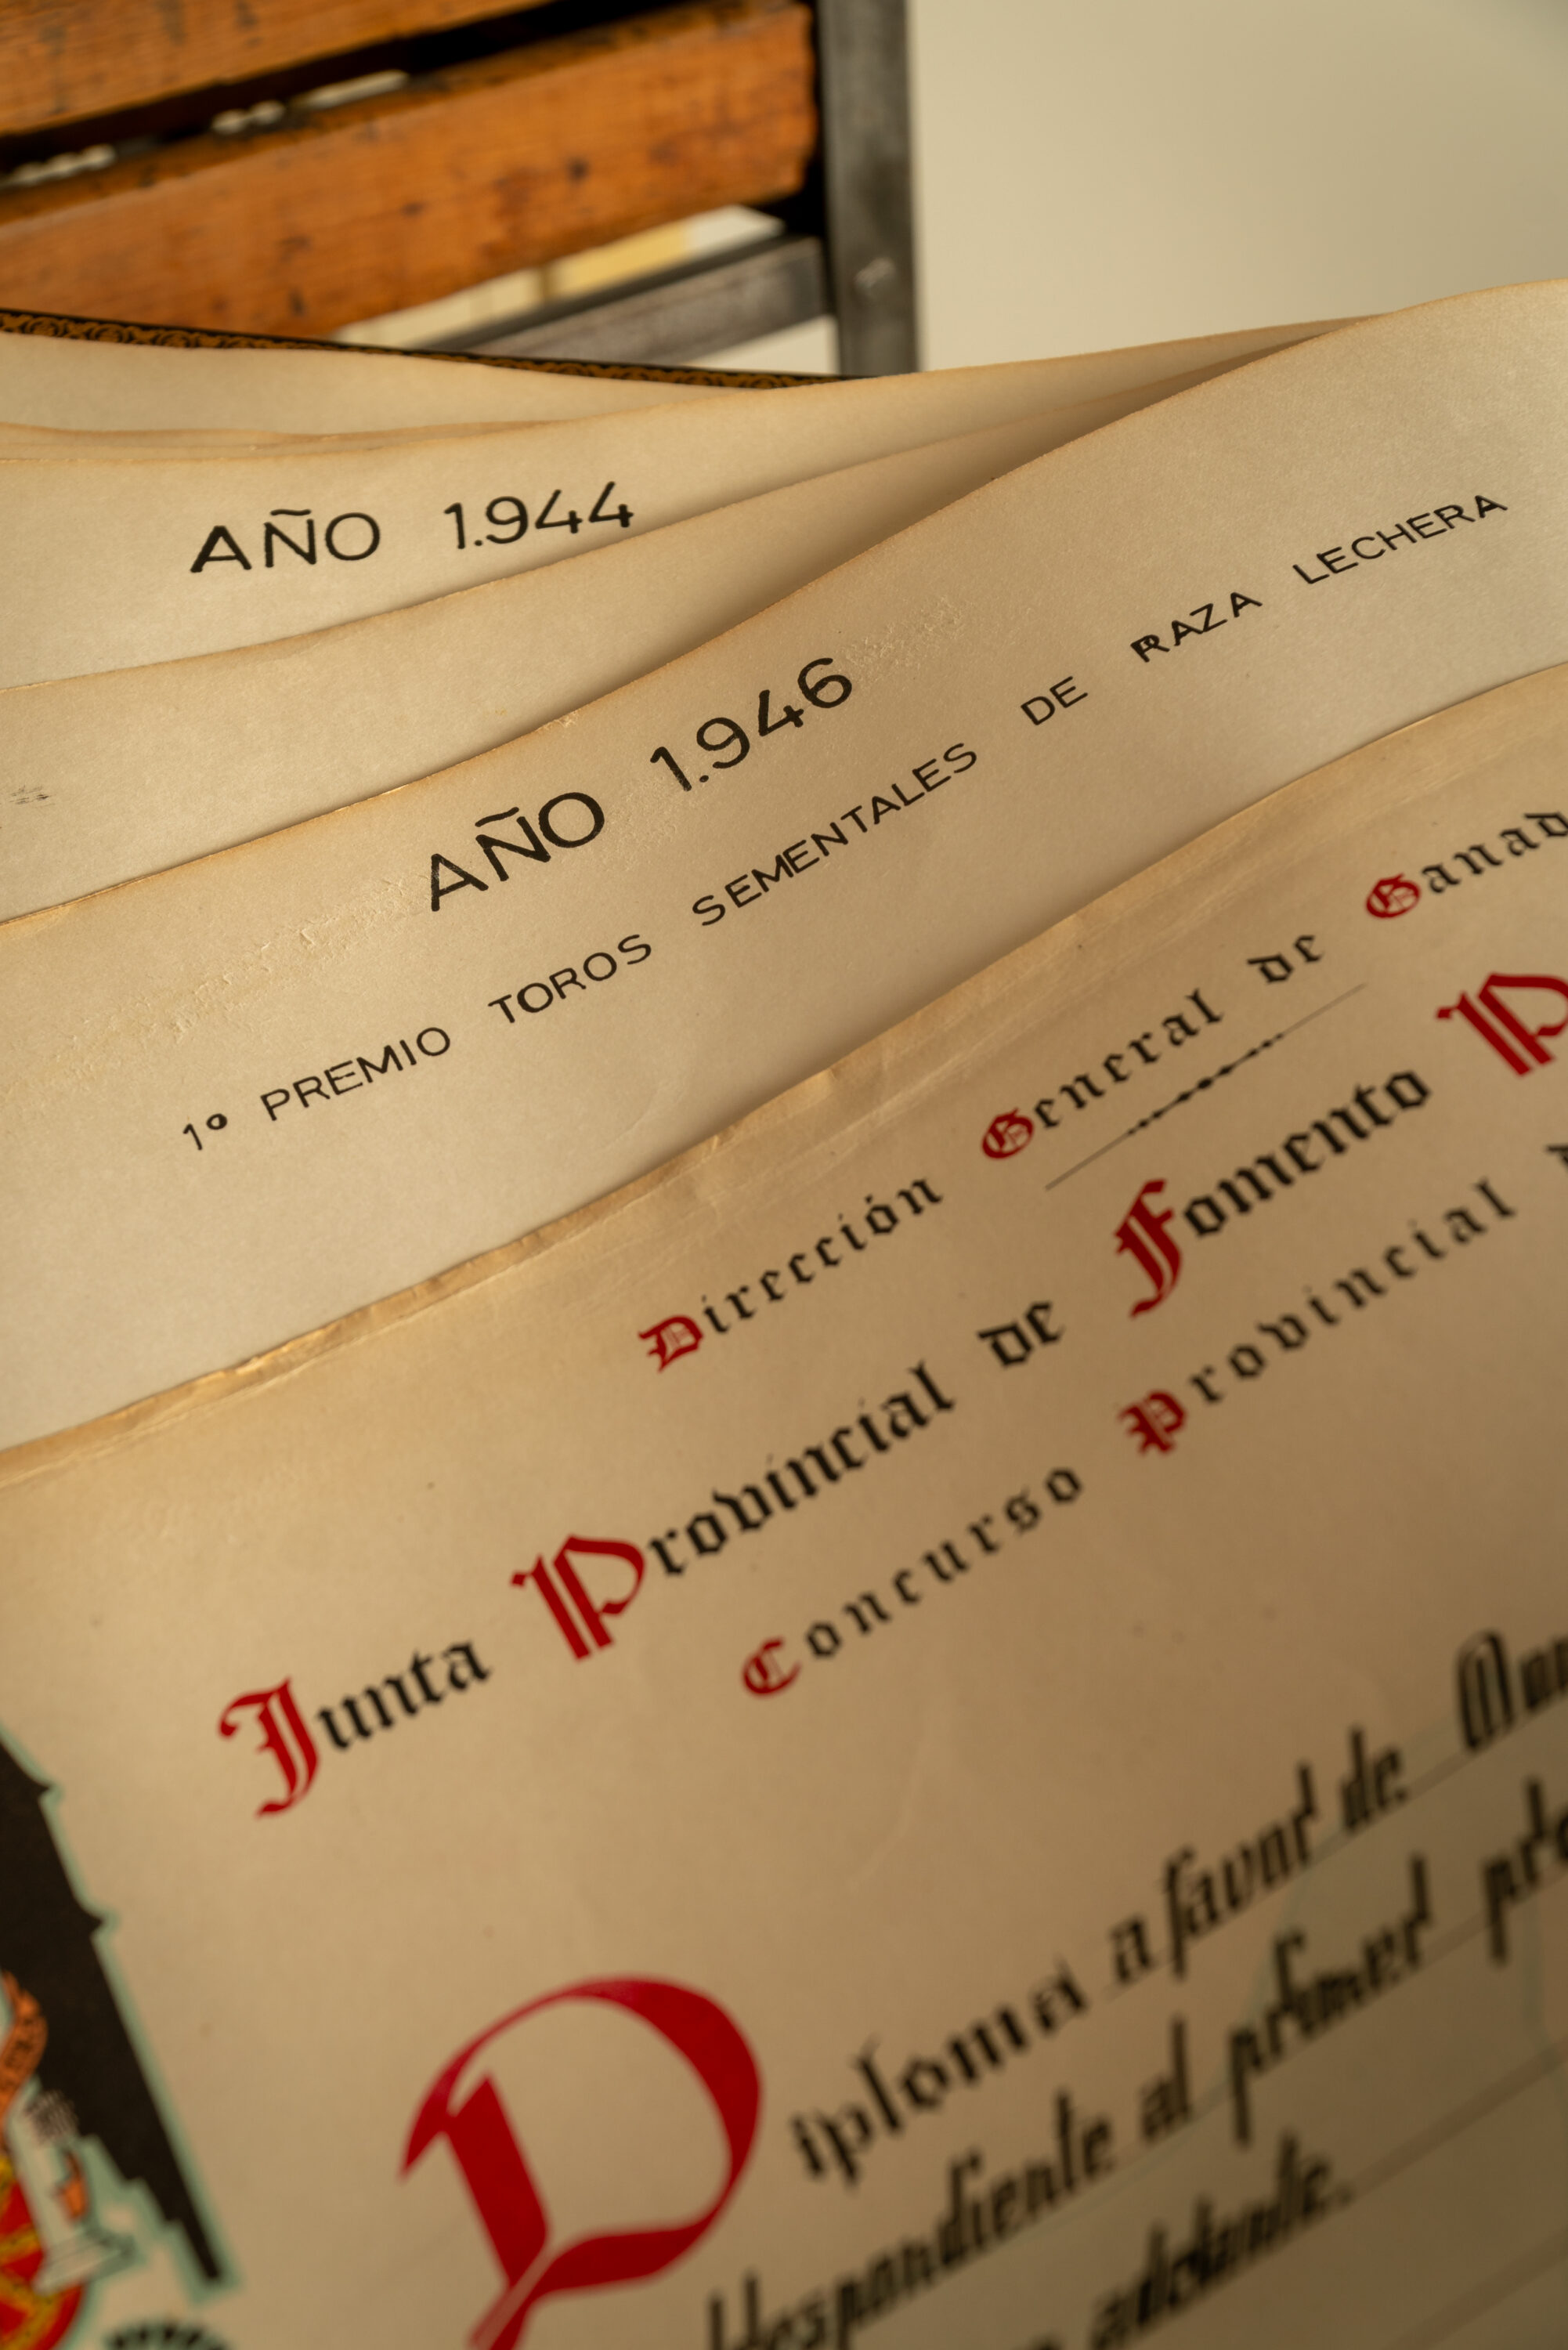 AÑO 1.944
AÑO 1.946
1º PREMIO TOROS SEMENTALES DE RAZA LECHERA
Dirección General de Ganad
Junta Provincial de Fomento P
Concurso Provincial
Diploma a favor de
respondiente al primer
adelante.